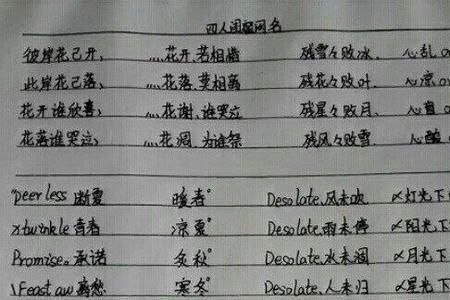 四人闺蜜网名
彼岸花已开、 灬花开、若相惜 残雪々败冰、 心乱
此岸花已落、 灬花落、莫相离 残花々败叶、 心凉
花开谁欣喜、 灬花谢、谁哭泣 残星々败月、 心
花落谁哭泣、 灬花凋、为谁祭 残风々败雪 心酸
"peerless 断夏 暖春° Desolate、风未吹 〆灯光下
xtwinkle 青春 凉夏° Desolate、雨未停 〆阳光下
Promise。承诺 冬秋° Desolate、水未涸 〆月光下
离愁 寒冬° Desolate、人未归 〆星光下